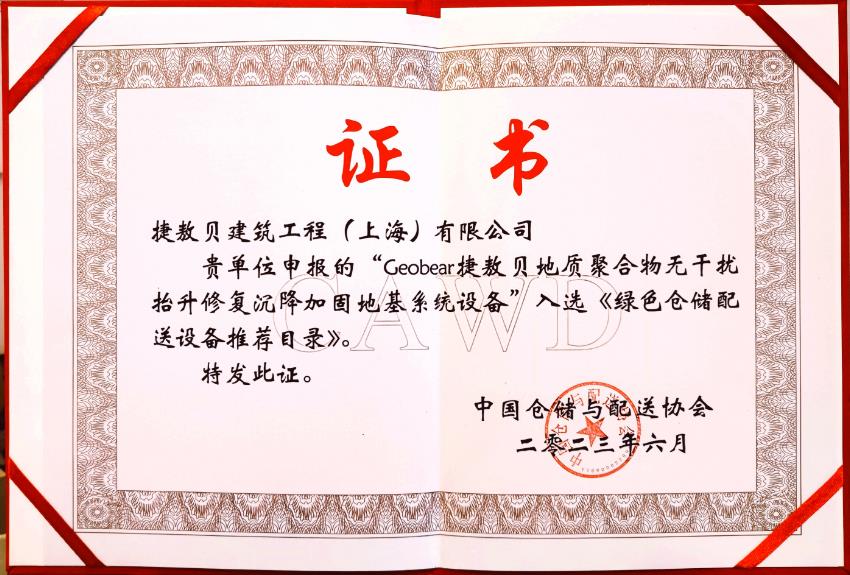 证书
捷敖贝建筑工程（上海）有限公司
贵单位申报的“Geobear捷敖贝地质聚合物无干扰
抬升修复沉降加固地基系统设备”入选《绿色仓储配
送设备推荐目录》。
特发此证。
CAWD
中国仓储与配送协会
二零二三年六月
中国仓储与配送协会